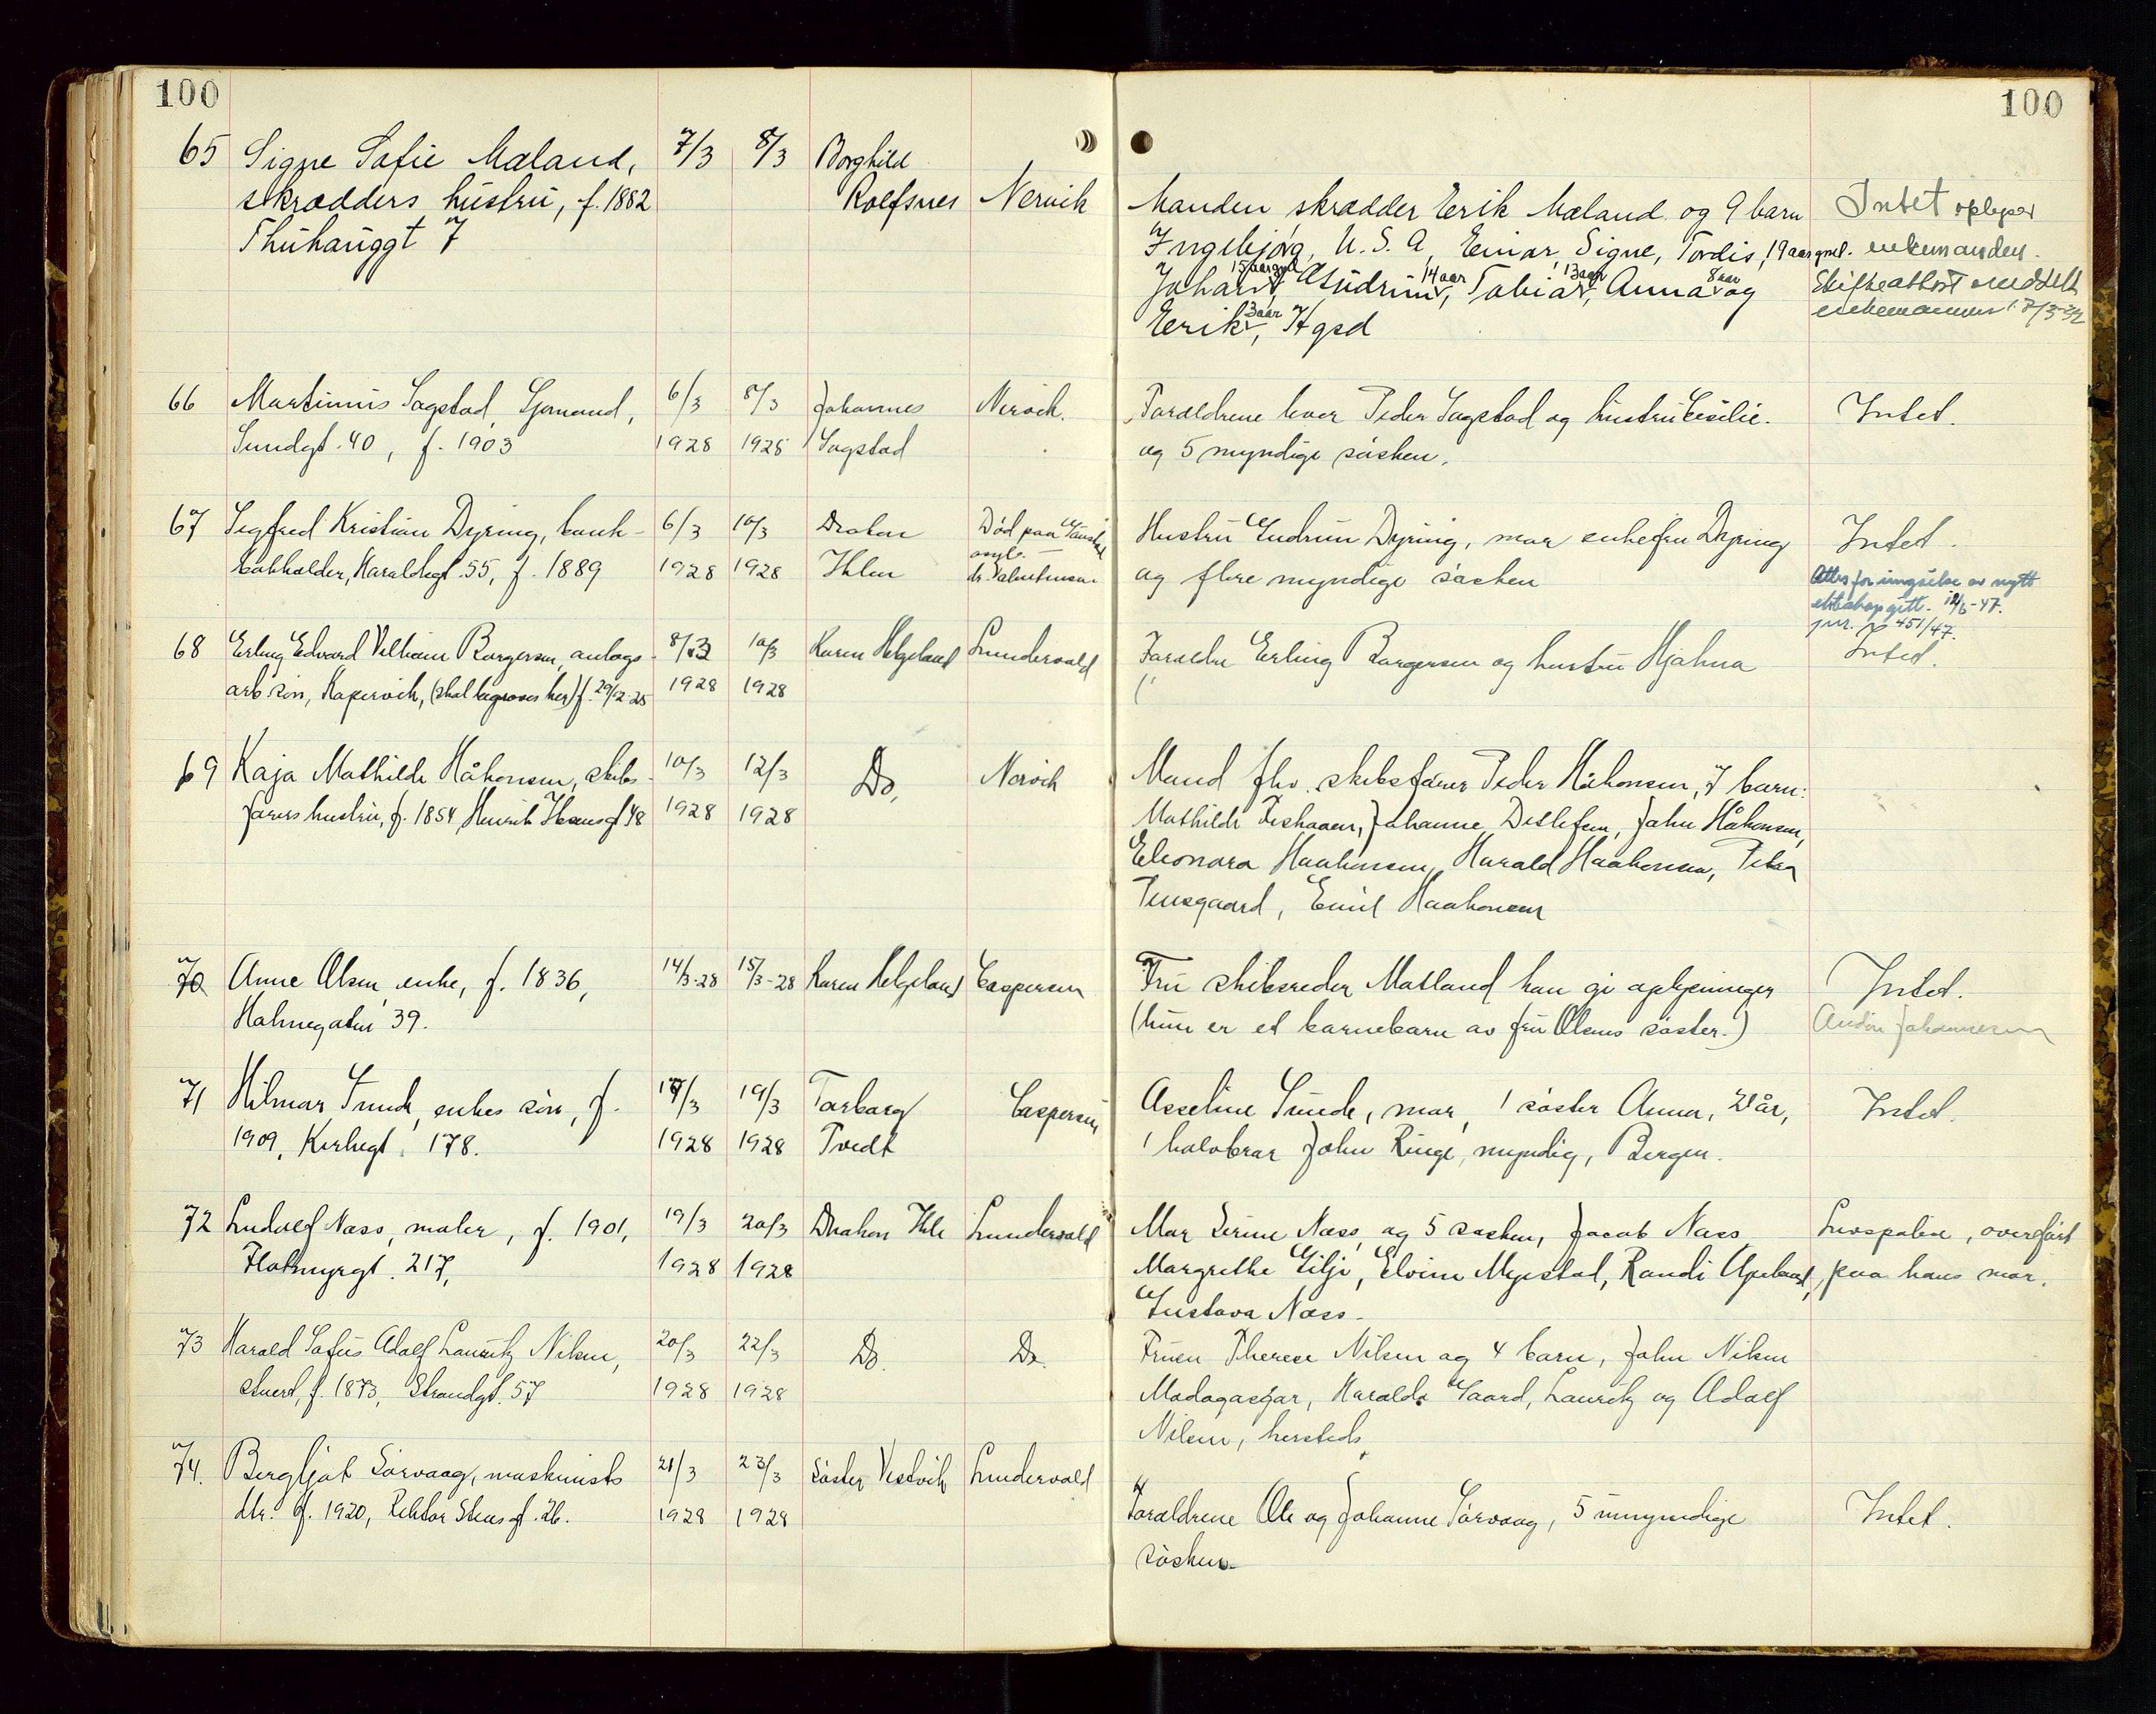 100
100
65 Signe Sofie Mæland, 7/3 8/3 Borghild
skrædders hustru, f. 1882 Rolfsnes Nervik
Thuhauggt 7
Manden skrædder Erik Mæland og 9 barn
Ingebjørg, U.S.A, Einar, Signe, Tordis, 19 aar gml.
Johan 15 aar gml, Gudrun 14 aar, Tobias 13 aar, Anna 8 aar og
Erik 3 aar, Hgsd
Intet oplyser
enkemanden.
Skifteattest meddelt
enkemannen 17/3-32
66 Martinius Sagstad, Sjømand, 6/3 8/3 Johannes Nervik.
Sundgt. 40, f. 1903 1928 1928 Sagstad
Forældrene lever Peder Sagstad og hustru Cesilie.
og 5 myndige søsken.
Intet.
67 Sigfred Kristian Dyring, bank- 6/3 10/3 Diakon Død paa
bokholder, Haraldsgt. 55, f. 1889 1928 1928 Ihlen asyl.
Hustru Gudrun Dyring, mor enkefru Dyring
og flere myndige søsken
Intet.
Attest for inngåelse av nytt
ekteskap gitt. 12/6-47.
jnr. 451/47.
68 Erling Edvard Vilhelm Borgersen, anlegs- 8/3 10/3 Karen Helgeland Lundervold
arb. søn, Kopervik, (skal begraves her) f. 29/12-25 1928 1928
Forældre Erling Borgersen og hustru Hjalma
Intet.
69 Kaja Mathilde Håkonsen, skibs- 10/3 12/3 Do, Nervik
førers hustru, f. 1854 Henrik Ibsensgt 48 1928 1928
Mand fhv. skibsfører Peder Håkonsen, 7 barn:
Mathilde Fishaaen, Johanne Detlefsen, John Håkonsen,
Eleonora Haakonsen, Harald Haakonsen, Petra
Tinsgaard, Emil Haakonsen
70 Anne Olsen, enke, f. 1836, 14/3-28 15/3-28 Karen Helgeland Caspersen
Holmegaten 39.
Fru skibsreder Matland kan gi oplysninger
(hun er et barnebarn av fru Olsens søster.)
Intet.
Johannesen
71 Hilmar Sunde, enkes søn, f. 17/3 19/3 Torborg Caspersen
1909, Kirkegt. 178. 1928 1928 Tvedt
Asseline Sunde, mor, 1 søster Anna, 21 år,
1 halvbror John Ringe, myndig, Bergen.
Intet.
72 Ludolf Næss, maler, f. 1901, 19/3 20/3 Diakon Ihle Lundervold
Flotmyrgt. 217, 1928 1928
Mor Serine Næss, og 5 søsken, Jacob Næss,
Margrethe Gilje, Elvine Myrstøl, Randi
Gustava Næss.
Livspolise, overført
paa hans mor.
73 Harald Sofus Adolf Lauritz Nilsen, 20/3 22/3 Do. Do.
stuert, f. 1873, Strandgt. 57 1928 1928
Fruen Therese Nilsen og 4 barn, John Nilsen
Madagaskar, Haralda Gaard, Lauritz og Adolf
Nilsen, hersteds
74. Bergljot Sørvaag, maskinists 21/3 23/3 Søster Vestvik Lundervold
dtr. f. 1920, Rektor Steensgt. 26. 1928 1928
Forældrene Ole og Johanne Sørvaag, 5 umyndige
søsken
Intet.